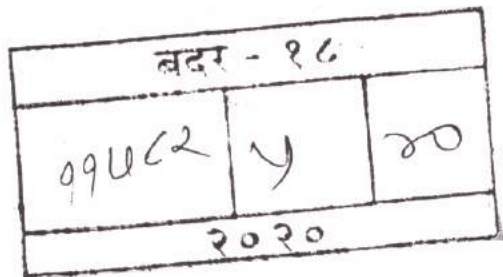 बदर - १८
११५८२ ५ २०
२०२०